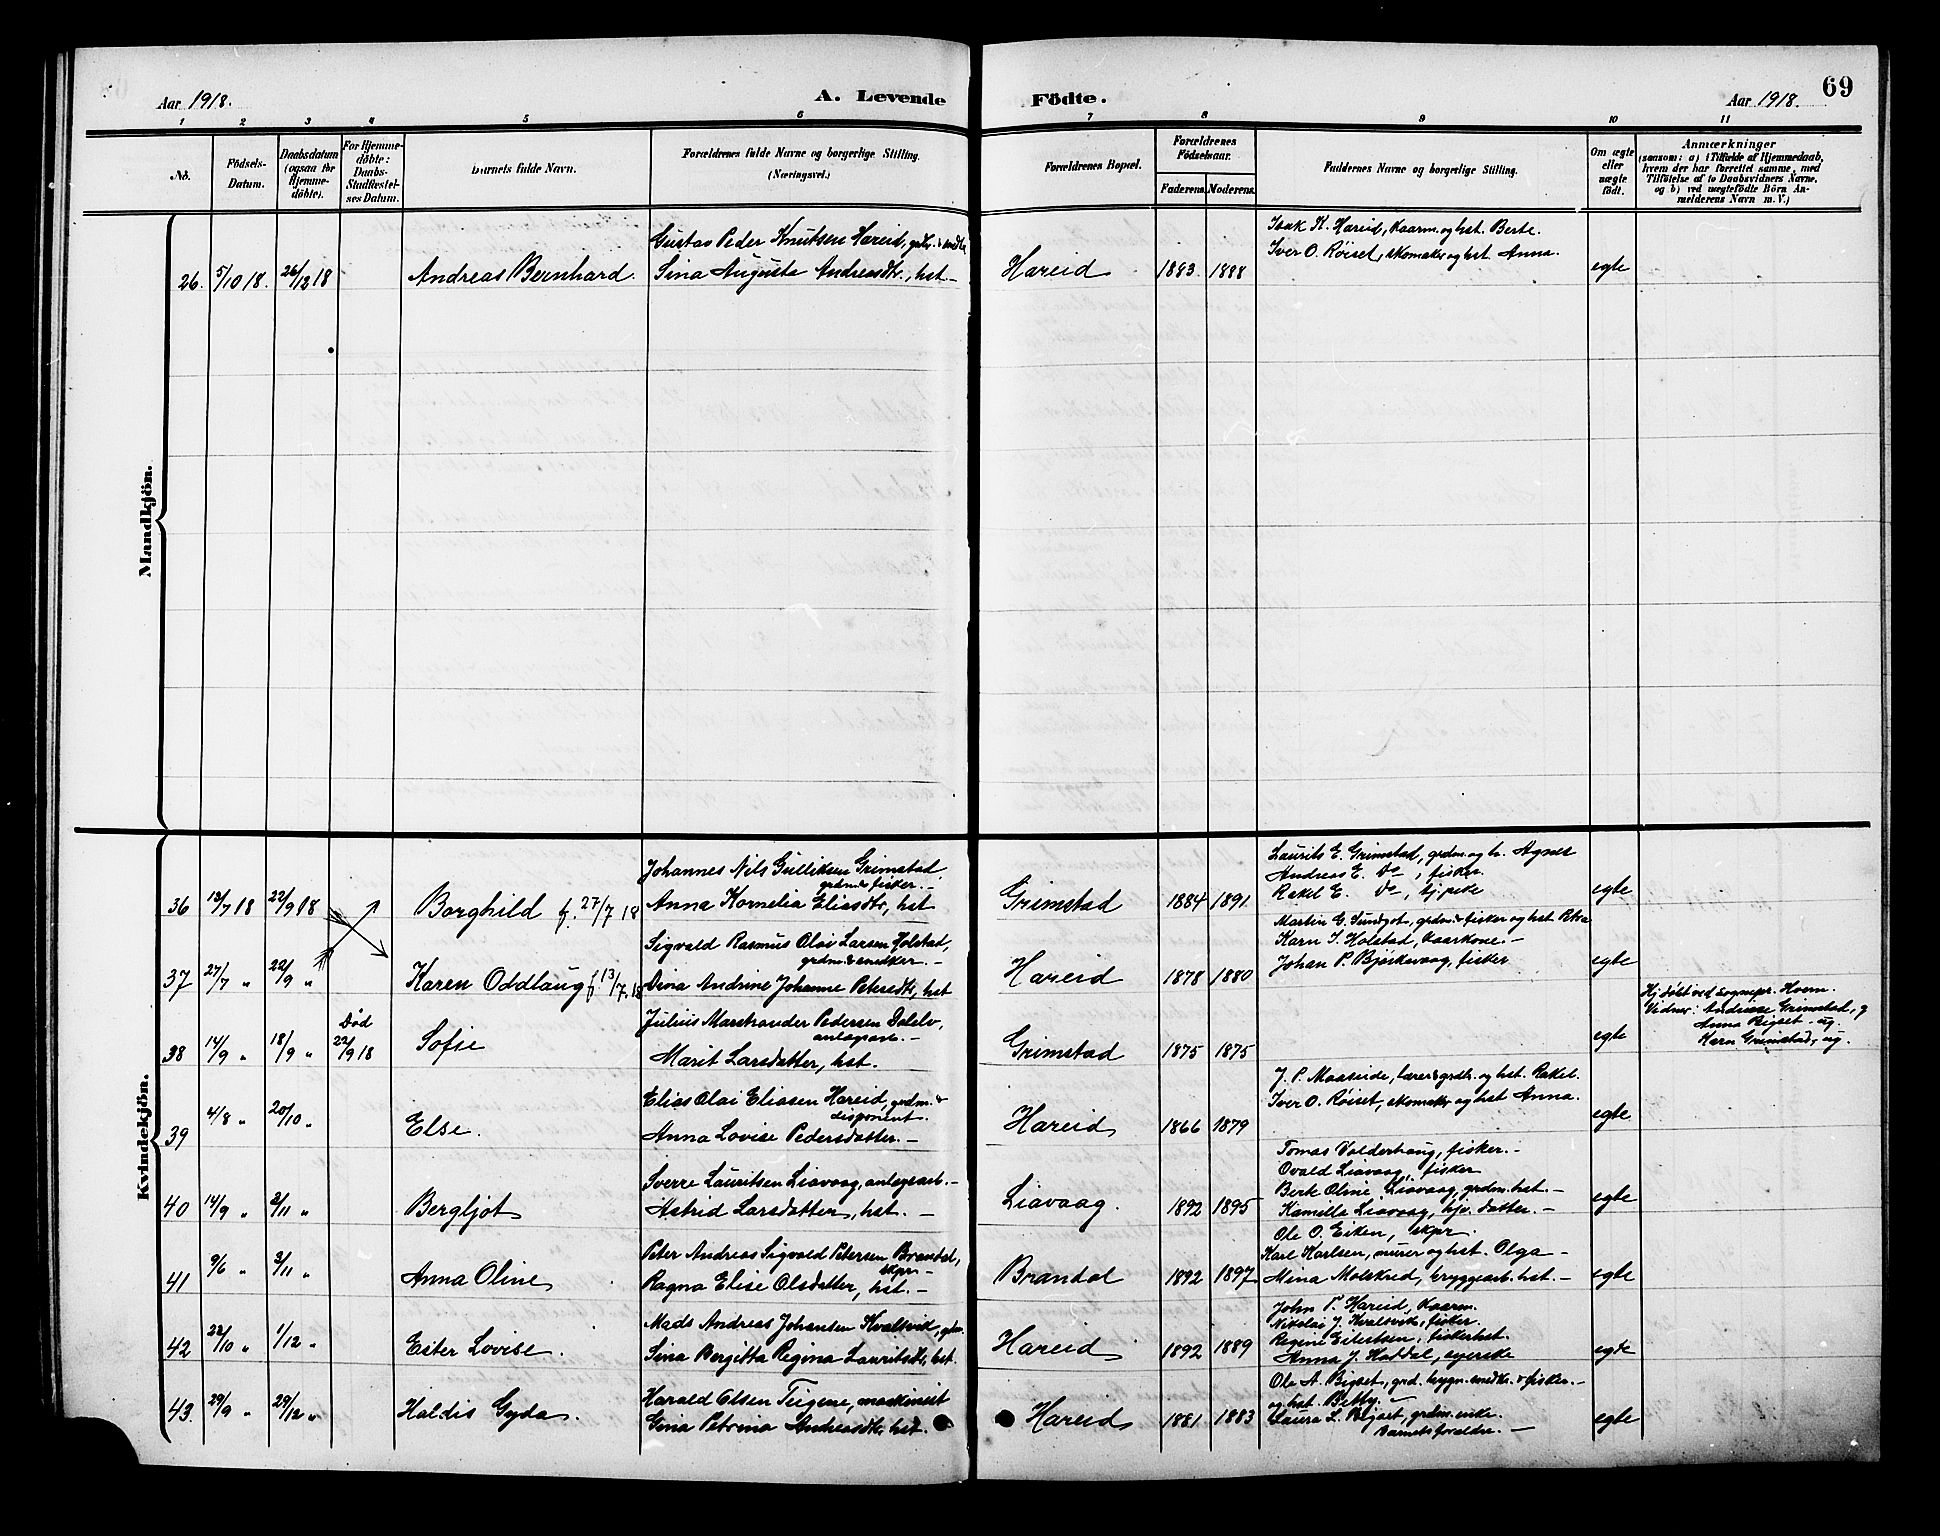 Aar 1918.
A. Levende
Födte.
Aar 1918.
69
1 2 3 4 5 6 7 8 9 10 11
No.
Födsels-Datum.
Daabsdatum (ogsaa for Hjemme-døbte).
For Hjemme-døbte: Daabs-Stadfæstel-ses Datum.
Barnets fulde Navn.
Forældrenes fulde Navne og borgerlige Stilling.
(Næringsvei.)
Forældrenes Bopæl.
Forældrenes Fødselsaar.
Faderens. Moderens.
Faddernes Navne og borgerlige Stilling.
Om ægte eller uægte født.
Anmærkninger
(saasom: a) i Tilfælde af Hjemmedaab, hvem der har forrettet samme, med Tilføielse af to Daabsvidners Navne, og b) ved uægtefødte Börn An-melderens Navn m. V.)
Mandkjön.
Gustav Peder Knutsen Hareid, grdbr. & smed
Isak K. Hareid, kaarm. og hst. Berte.
Iver O. Røiset, skomaker og hst Anna.
26. 5/10 18. 26/12 18 Andreas Bernhard. Sina Augusta Andreasdtr., hst Hareid 1883. 1888 egte
Kvindekjön.
Johannes Nils Gulliksen Grimstad
grdm. & fisker. —
Laurits E. Grimstad, grdm. og h. Agnes
Andreas E. Do, fisker.
Rakel E. Do, tj. pike
36 13/7 18 22/9 18 Borghild f. 27/7 18 Anna Kornelia Eliasdtr, hst Grimstad 1884 1891 egte
Sigvald Rasmus Olai Larsen Holstad,
grdm. & snedker. —
Martin G. Sundgot, grdm. & fisker og hst
Karn I. Holstad, kaarkone. —
Johan P. Bjørkavaag, fisker
37 27/7 " 22/9 " Karen Oddlaug f. 13/7. 18 Dina Andrine Johanne Petersdtr, hst Hareid 1878 1880 egte
Julius Marstrander Pedersen Dalelv,
anlægsarb. —
Hj. døbt ved sognepr. Hovem.
Vidner: Andrease Grimstad, g
Anna Bigset. ug
Karn Grimstad, ug.
38 14/9 " 18/9 " Død 22/9 18 Sofie Marit Larsdatter, hst. Grimstad 1875 1875 egte
Elias Olai Eliasen Hareid, grdm. &
disponent.
J. P. Maaseide, lærer & grdbr. og hst. Rakel.
Iver O. Røiset, skomaker og hst Anna.
39 4/8 " 20/10 " Else. Anna Lovise Pedersdatter. — Hareid 1866 1879 egte
Sverre Lauritsen Liavaag, anlegsarb. —
Tomas Valderhaug, fisker. —
Ovald Liavaag, fisker
Berte Oline Liavaag, grdm. hst. —
Kamilla Liavaag, hjv. datter. —
40 14/9 " 3/11 " Bergljot Astrid Larsdatter, hst. — Liavaag. 1892 1895 egte
Peter Andreas Sigvald Petersen Brandal,
skpr —
Ole O. Eiken, skpr.
Karl Karlsen, murer og hst. Olga —
Mina Molskred, bryggearb. hst. —
41 9/6 " 3/11 " Anna Oline Ragna Elise Olsdatter, hst. — Brandal 1892 1897 egte
Mads Andreas Johansen Kvalsvik,
John P. Hareid, kaarm.
Nikolai J. Kvalsvik, fisker.
Regine Eilertsen, fiskerhst.
Anna J. Haddal, syerske
42 22/10 " 1/12 " Ester Lovise. Sina Bergitta Regina Lauritsdtr, hst. Hareid 1892 1889 egte
Harald Olsen Teigene, maskinist
Ole A. Bigset, grd. bryn. smedkr. & fisker. —
og hst. Betty. —
Laura L. Bigset, grdm. enke.
Barnets foreldre. —
43. 29/9 " 29/12 " Haldis Gyda. Gina Petrina Andreasdtr, hst. Hareid 1881 1883 egte